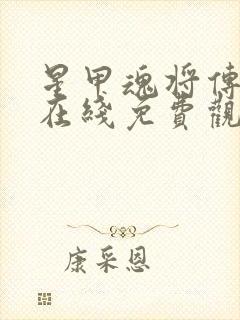 星甲魂将傳
在綫免費觀
康采恩